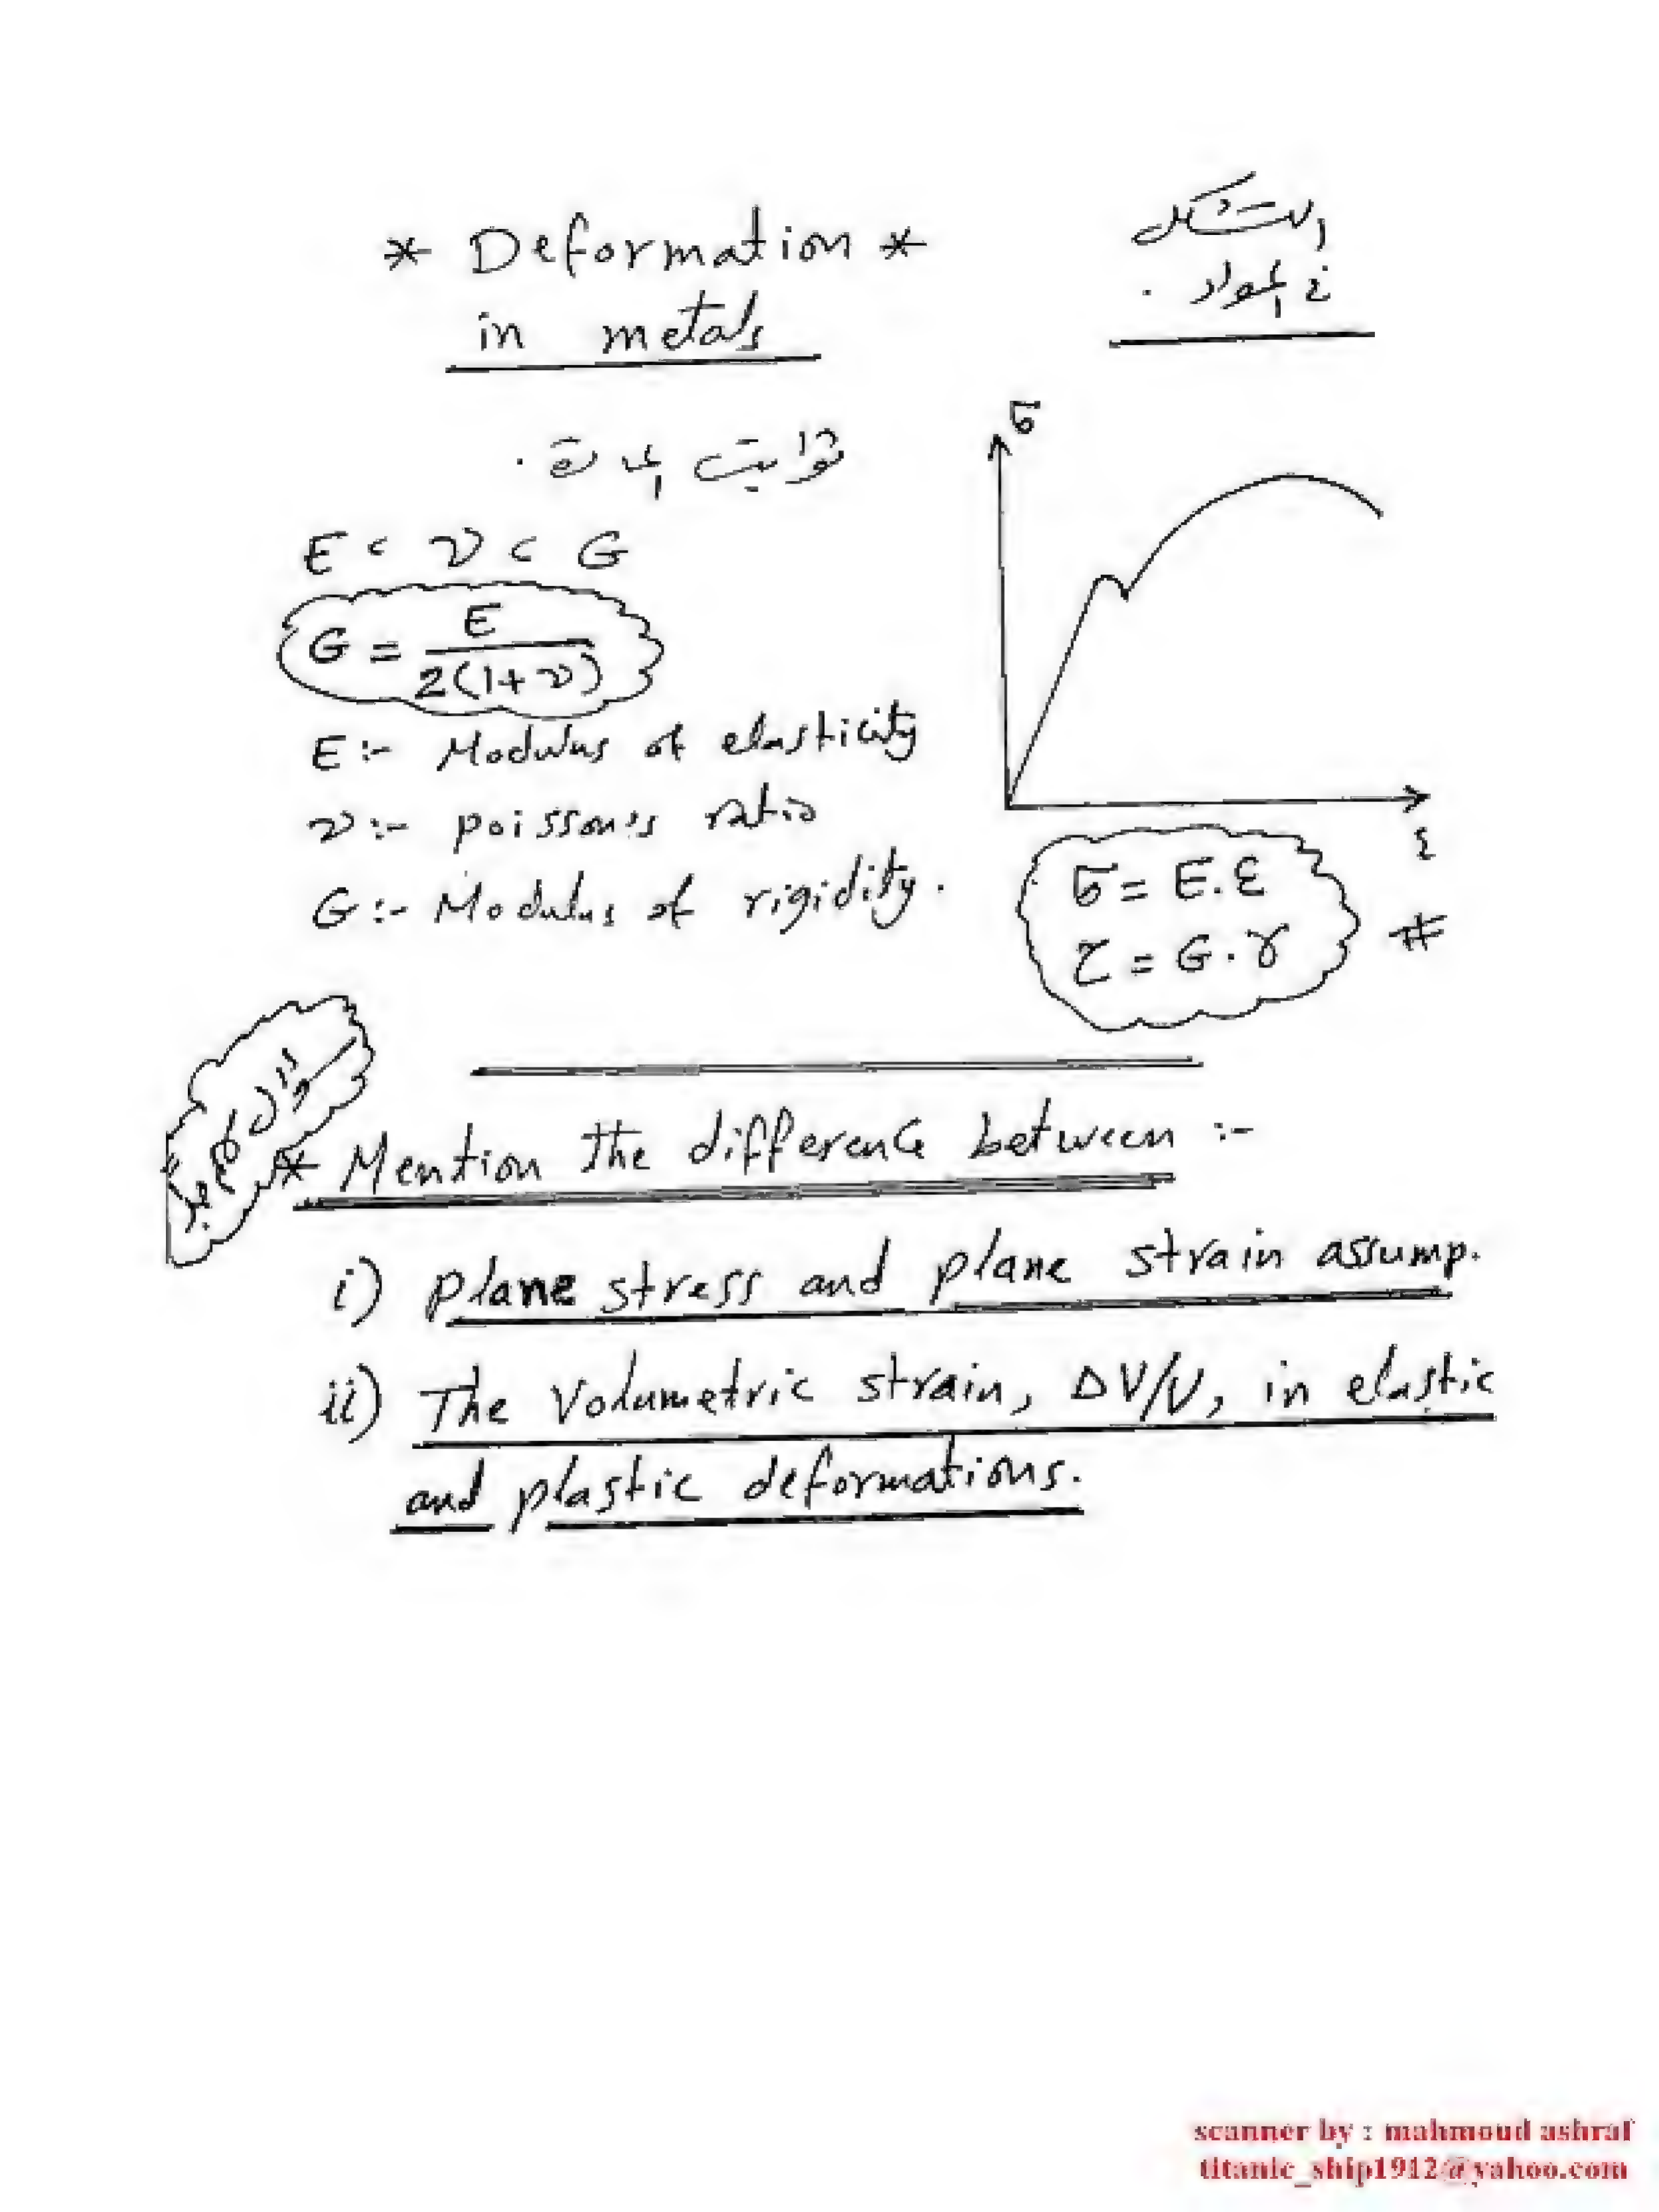 * Deformation *
in metals
التشكل
في المواد .
ثوابت المادة .
σ
E ، ν ، G
G = E / 2(1+ν)
E :- Modulus of elasticity
ν :- poisson's ratio
G :- Modulus of rigidity .
ε
σ = E . ε
τ = G . γ
#
* Mention the difference between :-
i) plane stress and plane strain assump.
ii) The Volumetric strain, ΔV/V, in elastic
and plastic deformations.
scanner by : mahmoud ashraf
titanic_ship1912@yahoo.com